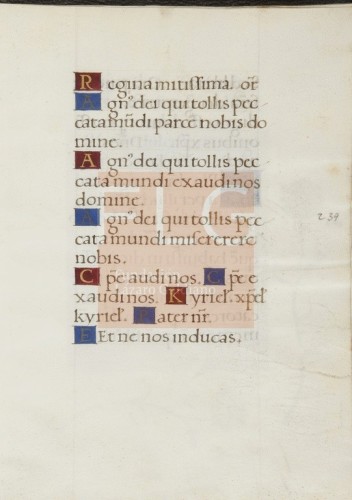 Regina mitissima. or̃
Agn⁹ dei qui tollis pec
cata mũdi parce nobis do
mine.
Agn⁹ dei qui tollis pec
cata mundi exaudi nos
domine.
Agn⁹ dei qui tollis pec
cata mundi miserere
nobis.
C p̃e audi nos. C p̃e e
xaudi nos. Kyriel'. xp̃el'
kyriel'. Pater nr̃.
Et ne nos inducas.
239